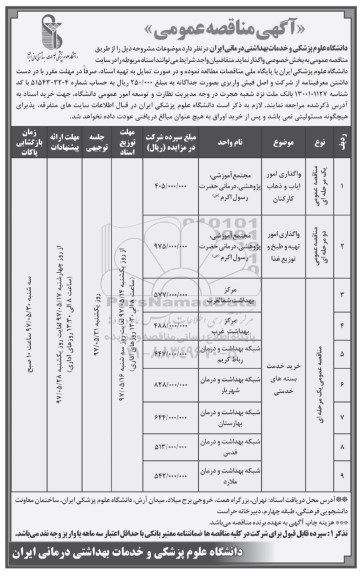 «آگهی مناقصه عمومی»
دانشگاه علوم پزشکی و خدمات بهداشتی درمانی ایران در نظر دارد موضوعات مشروحه ذیل را از طریق
مناقصه عمومی به بخش خصوصی واگذار نماید. متقاضیان واجد شرایط می توانند اسناد مربوطه را در سایت
دانشگاه علوم پزشکی ایران یا پایگاه ملی مناقصات مطالعه نموده و در صورت تمایل به تهیه اسناد، صرفاً در مهلت مقرر با در دست
داشتن معرفینامه از شرکت و اصل فیش واریزی بصورت جداگانه به مبلغ ۲۵۰/۰۰۰ ریال به حساب شماره
شعبه هجرت در وجه مدیریت نظارت و توسعه امور عمومی دانشگاه، جهت خرید اسناد به
آدرس ذکرشده مراجعه نمایند. لازم به ذکر است دانشگاه علوم پزشکی ایران در قبال اطلاعات سایت های متفرقه، پذیرای
هیچگونه مسئولیتی نمی باشد و پس از خرید اوراق به هیچ عنوان مبالغ دریافتی عودت داده نخواهد شد.
ردیف نوع موضوع نام واحد مبلغ سپرده شرکت در مزایده (ریال) مهلت توزیع اسناد جلسه توجیهی مهلت ارائه پیشنهادات زمان بازگشایی پاکات
۱ مناقصه عمومی یک مرحله ای واگذاری امور ایاب و ذهاب کارکنان مجتمع آموزشی، پژوهشی، درمانی حضرت رسول اکرم ۴۰۵/۰۰۰/۰۰۰
۲ مناقصه عمومی دو مرحله ای واگذاری امور تهیه و طبخ و توزیع غذا مجتمع آموزشی، پژوهشی، درمانی حضرت رسول اکرم ۹۷۵/۰۰۰/۰۰۰
مناقصه عمومی یک مرحله ای خرید خدمت بسته های خدمتی
۳ مرکز بهداشت شمالغرب ۵۷۷/۰۰۰/۰۰۰
۴ مرکز بهداشت غرب ۴۸۸/۰۰۰/۰۰۰
۵ شبکه بهداشت و درمان رباط کریم ۴۴۷/۰۰۰/۰۰۰
۶ شبکه بهداشت و درمان شهریار ۸۲۸/۰۰۰/۰۰۰
۷ شبکه بهداشت و درمان بهارستان ۶۴۴/۰۰۰/۰۰۰
۸ شبکه بهداشت و درمان قدس ۵۱۳/۰۰۰/۰۰۰
۹ شبکه بهداشت و درمان ملارد ۵۴۲/۰۰۰/۰۰۰
روز یکشنبه ۹۷/۰۵/۲۱
سه شنبه ۹۷/۰۵/۳۰ ساعت ۱۰ صبح
** آدرس محل دریافت اسناد: تهران، بزرگراه همت، خروجی برج میلاد، میدان آرش، دانشگاه علوم پزشکی ایران، ساختمان معاونت
دانشجویی فرهنگی، طبقه چهارم، دبیرخانه حراست
** هزینه چاپ آگهی به عهده برنده مناقصه می باشد.
تذکر ۱: سپرده قابل قبول برای شرکت در کلیه مناقصه ها ضمانتنامه معتبر بانکی با حداقل اعتبار سه ماهه یا واریز وجه نقد می باشد.
دانشگاه علوم پزشکی و خدمات بهداشتی درمانی ایران